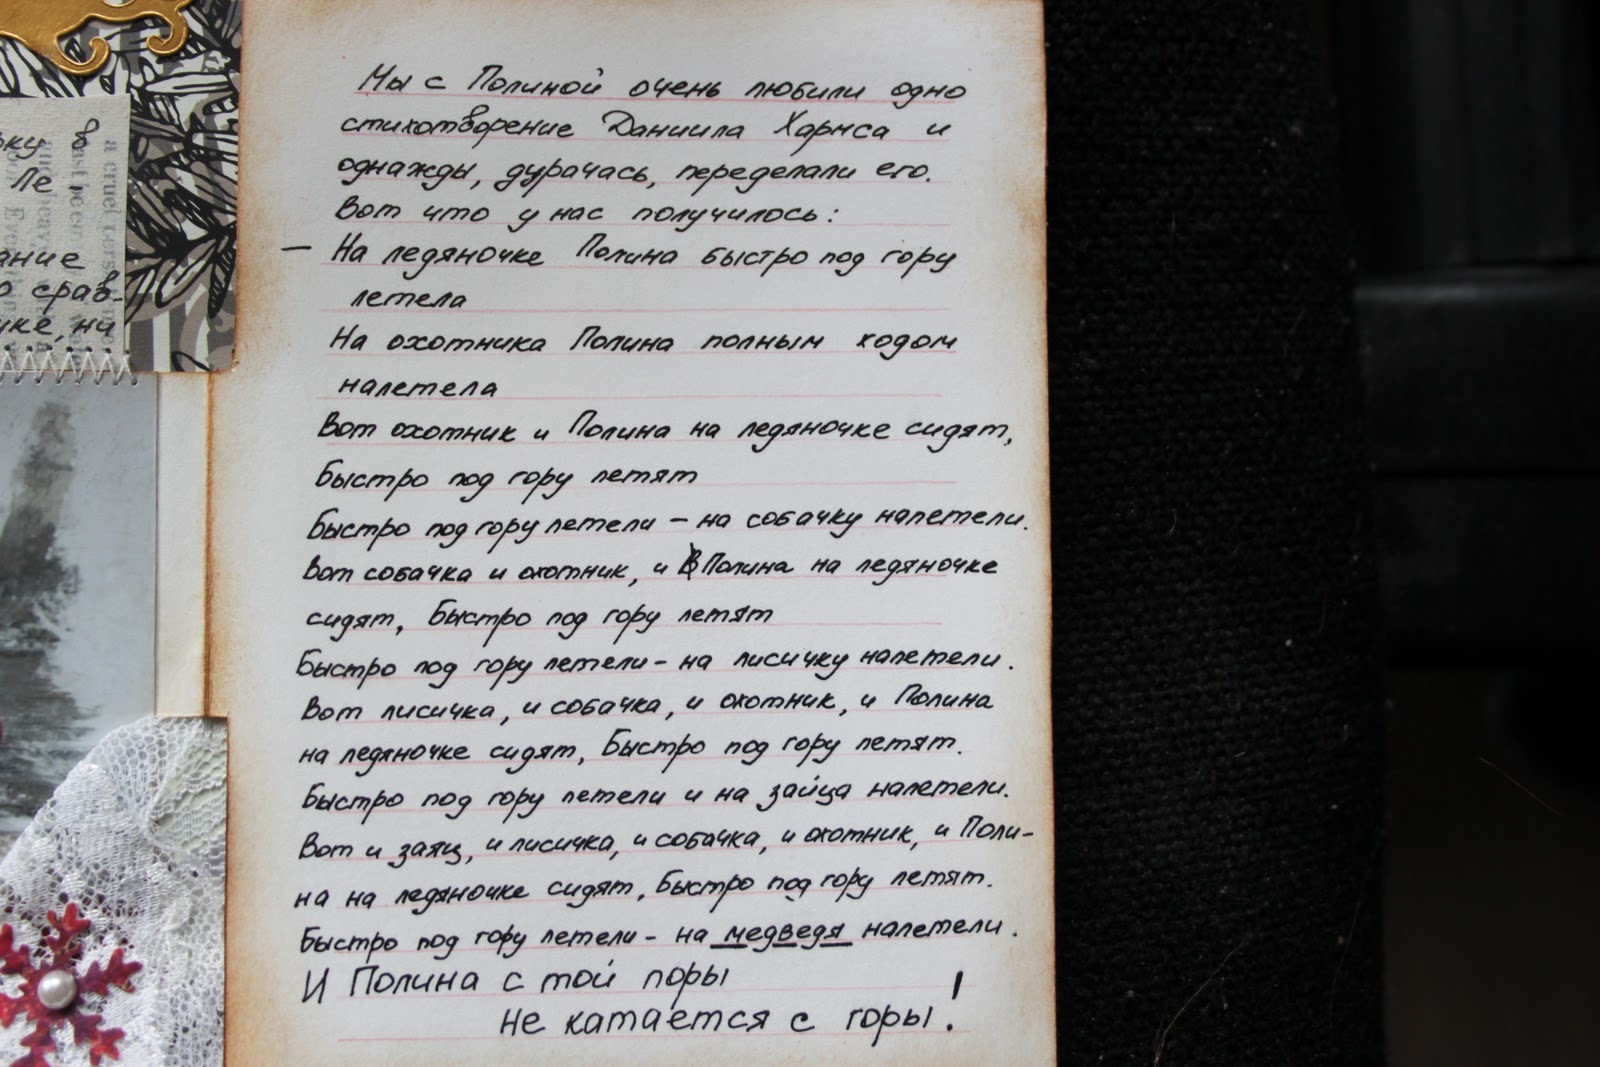 рку в
Ле
ание
о срав-
ике, ни
a cruel
Мы с Полиной очень любили одно
стихотворение Даниила Хармса и
однажды, дурачась, переделали его.
Вот что у нас получилось:
— На ледяночке Полина быстро под гору
летела
На охотника Полина полным ходом
налетела
Вот охотник и Полина на ледяночке сидят,
Быстро под гору летят
Быстро под гору летели – на собачку налетели.
Вот собачка и охотник, и Полина на ледяночке
сидят, Быстро под гору летят
Быстро под гору летели – на лисичку налетели.
Вот лисичка, и собачка, и охотник, и Полина
на ледяночке сидят, Быстро под гору летят.
Быстро под гору летели и на зайца налетели.
Вот и заяц, и лисичка, и собачка, и охотник, и Поли-
на на ледяночке сидят, Быстро под гору летят.
Быстро под гору летели – на медведя налетели.
И Полина с той поры
не катается с горы!